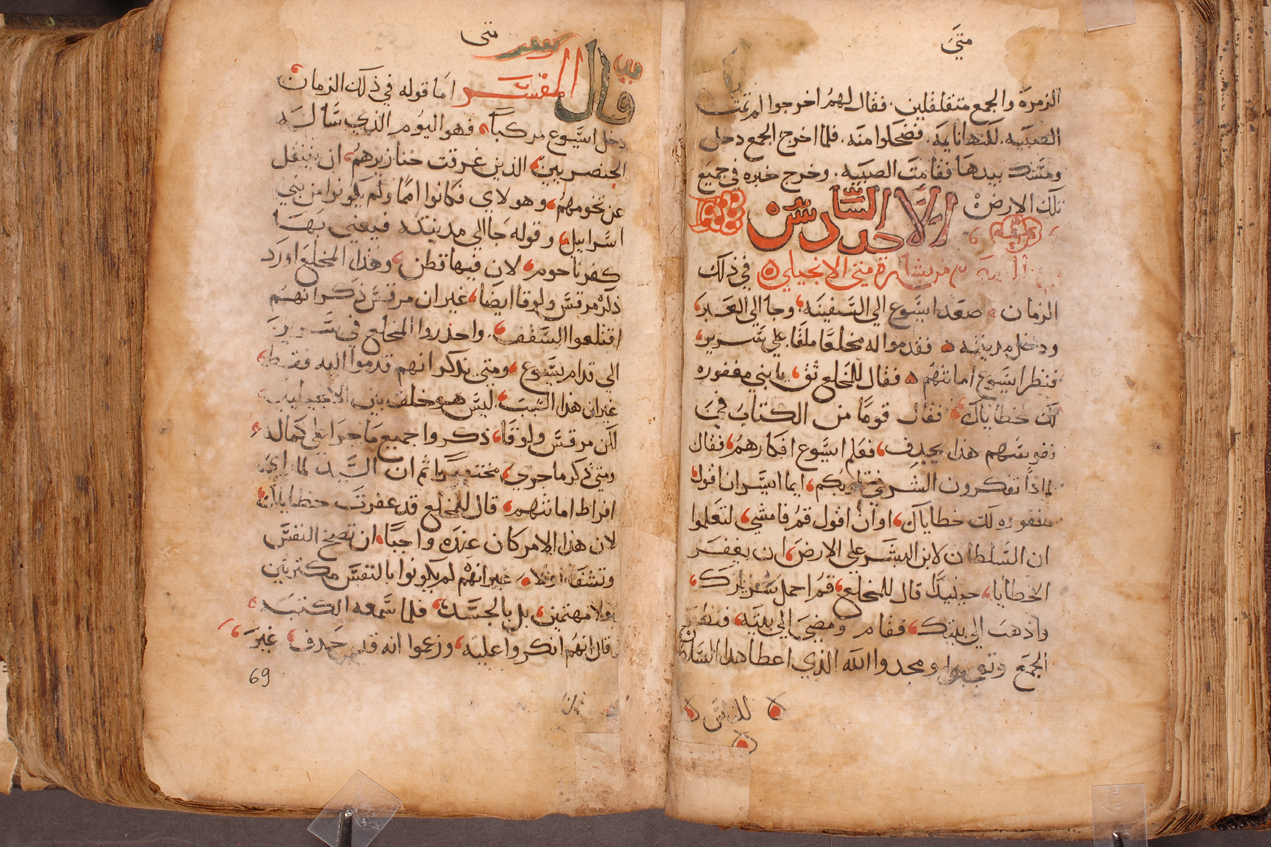 متى
الزمرة والجمع متقلقلين. فقال لهم اخرجوا لم تمت
الصبيه. لكنها نايمة. فضحكوا منه. فلما اخرج الجمع دخل
ومسك بيدها فقامت الصبيه. وخرج خبره في جميع
تلك الارض
الاحد السادس
بشارة متى الانجيلي في ذلك
الزمان صعد ايسوع الى السفينه وجا الى العبر
ودخل مدينته فقدموا له مخلعا ملقا على سرير
فنظر ايسوع امانتهم فقال للمخلع ثق يا بني مغفوره
لك خطاياك فقال قوما من الكتاب في
نفوسهم هذا يجدف فعلم ايسوع افكارهم فقال
لماذا تفكرون الشر في قلوبكم ايما ايسر ان اقول
مغفوره لك خطاياك او ان اقول قم فامشي لتعلموا
ان السلطان لابن البشر على الارض ان يغفر
الخطايا حينيذ قال للمخلع قم احمل سريرك
واذهب الى بيتك فقام ومضى الى بيته فنظر
الجمع ومجدوا الله الذي اعطا هذا
للناس
متى
تفسير
قال المفسر اما قوله في ذلك الزمان
دخل ايسوع مركبا فهو اليوم الذي سال
الذين غرقت خنازيرهم ان ينتقل
عن تخومهم وهولاي فكانوا امما ولم يكونوا من بني
اسراييل وقوله جا الى مدينته فيعني بها
كفرناحوم لان فيها قطن وهذا المخلع اورد
ذكره مرقس ولوقا ايضا غير ان مرقس ذكر انهم
اقتلعوا السقف واحدروا المخلع في سريره
الى قدام ايسوع ومتى يذكر انهم قدموا اليه فقط
غير ان هذا ليس هو خلف بين الانجيليين
لكن مرقس ولوقا ذكروا جميع ما جرا على كماله
ومتى ذكر ما جرى مختصرا ثم ان السيد لما راى
افراط امانتهم قال للمخلع قد غفرت خطاياك
لان هذا الامر كان عنده واجبا ان تصح النفس
وتشفا اولا غير انهم لم يكونوا بالنفس مكترثين
ولا مهتمين بل بالجسد فلما سمعه الكتبه
قال انهم انكروا عليه وزعموا انه قد جدف غير
69